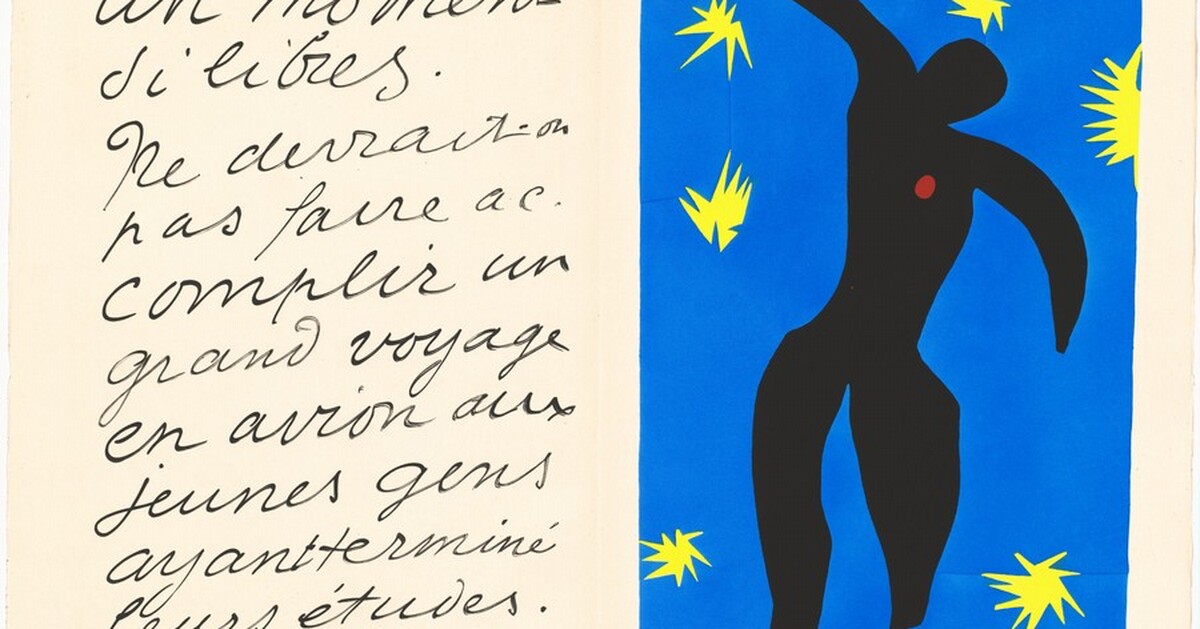 un momen-
si libres.
Ne devrait-on
pas faire ac-
complir un
grand voyage
en avion aux
jeunes gens
ayant terminé
leurs études.